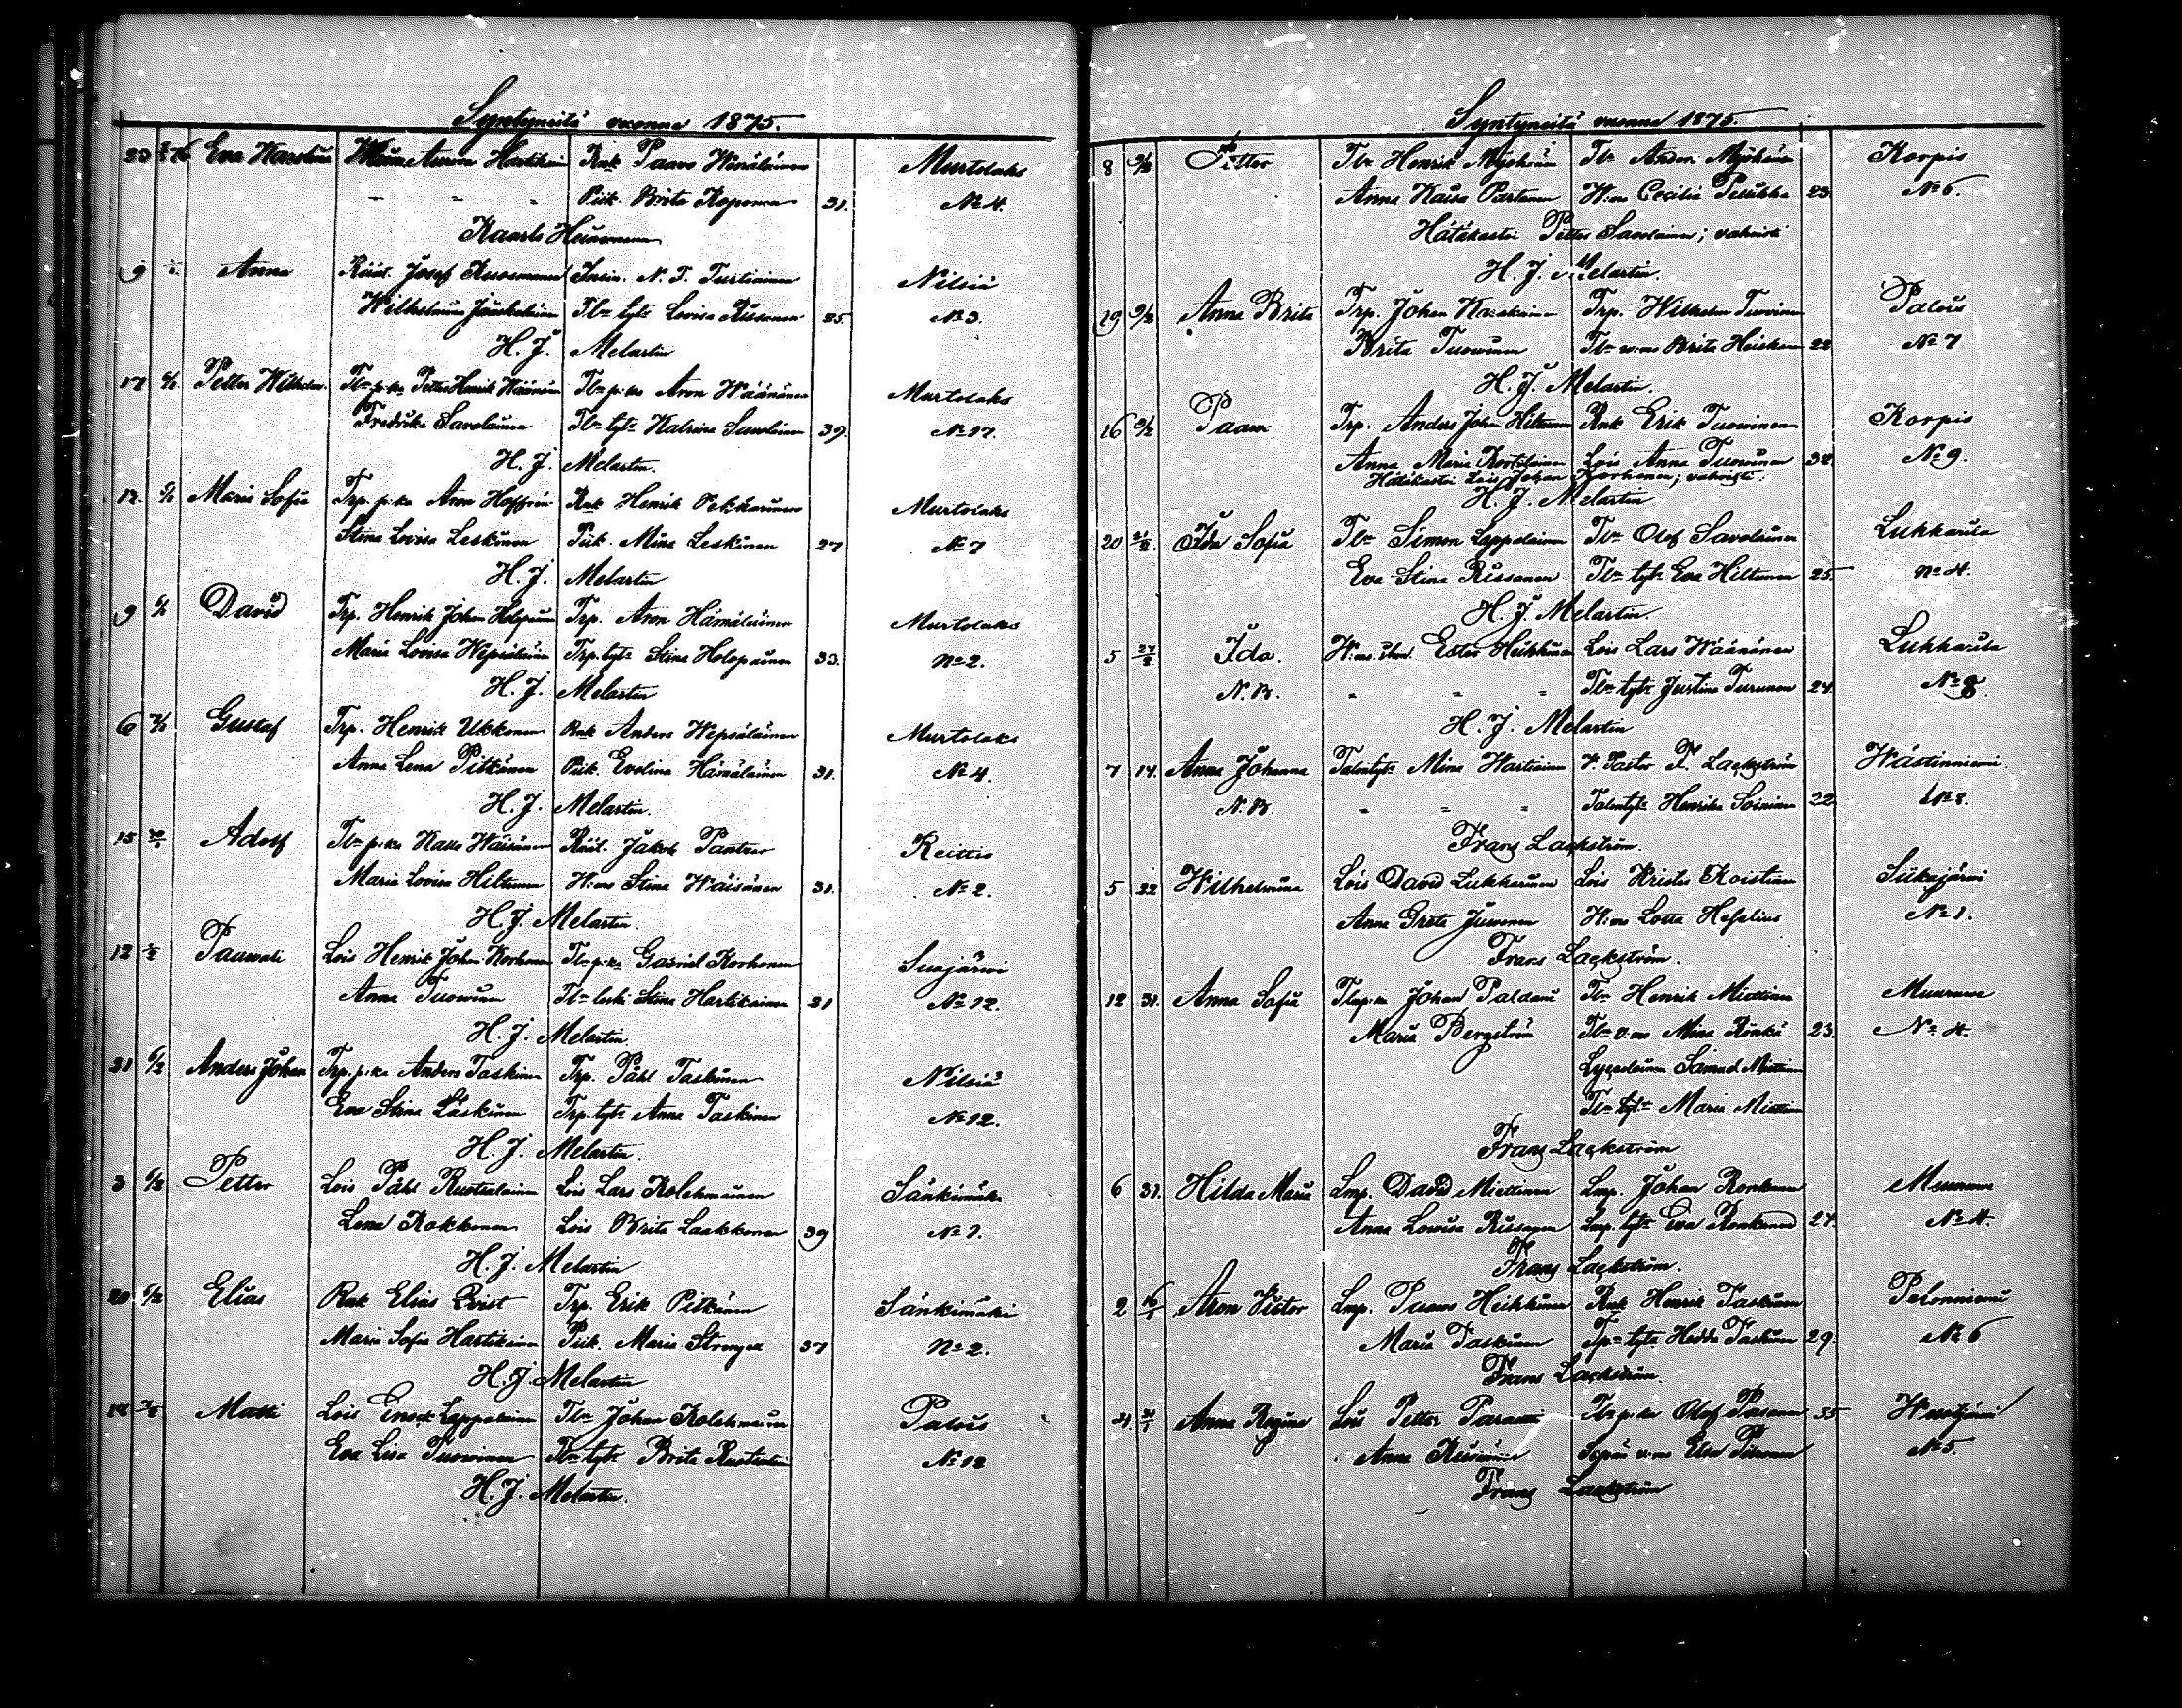 Syntyneitä vuonna 1875.
23 Eva Rnk Paavo Hämäläinen Murtolaks
" " " Piik. Brita Koponen 31. No 4.
Kaarlo
9 Anna Josef Kuosmanen Insin. N. T. Turtiainen Nilsiä
Wilhelmiina Jääskeläinen Tln tytr Lovisa Rissanen 25. No 3.
H. J. Melartin
17 6/2 Petter Wilhelm. Tln p:ka Petter Henrik Wäänänen Tln p:ka Aron Wäänänen Murtolaks
Fredrika Savolainen Tln tytr Katrina Savolainen 39. No 17.
H. J. Melartin.
12. 6/2 Maria Sofia Trp. p:ka Aron Hoffrén Rnk Henrik Pekkarinen Murtolaks
Stina Lovisa Leskinen Piik. Mina Leskinen 27 No 7
H. J. Melartin
9 6/2 David Trp. Henrik Johan Holopainen Trp. Aron Hämäläinen Murtolaks
Maria Lovisa Wepsäläinen Trp. tytr Stina Holopainen 33. No 2.
H. J. Melartin
6 Gustaf Trp. Henrik Ukkonen Rnk Anders Wepsäläinen Murtolaks
Anna Lena Pitkänen Piik. Evelina Hämäläinen 31. No 4.
H. J. Melartin.
15 Adolf Tln p:ka Wäisänen Jakob Keittio
Maria Lovisa Hiltunen W:mo Stina Wäisänen 31. No 2.
H. J. Melartin.
12 Paavali Lois Henrik Johan Korhonen Tln p:ka Gabriel Korhonen Suojärwi
Anna Tuovinen Tln leski Stina Hartikainen 21 No 12.
H. J. Melartin.
21 6/2 Anders Johan Trp. p:ka Anders Taskinen Trp. Påhl Taskinen Nilsiä
Eva Stina Laskinen Trp. tytr Anna Taskinen No 12.
H. J. Melartin.
3 6/2 Petter Lois Påhl Rustolainen Lois Lars Kolehmainen Sänkimäki
Lena Kokkonen Lois Brita Laakkonen 39 No 1.
H. J. Melartin
20. 6/2 Elias Rnk Elias Qvist Trp. Erik Pitkänen Sänkimäki
Maria Sofia Hartikainen Piik. Maria Strengell 37 No 2.
H. J. Melartin
18 Matti Lois Enock Lappalainen Tln Johan Kolehmainen Palois
Eva Lisa Tuovinen Tln tytr Brita No 12
H. J. Melartin.
Syntyneitä vuonna 1875.
8 9/2 Petter Tln Henrik Myöhänen Tln Anders Myöhänen Korpis
Anna Kaisa Partanen W:mo Cecilia 23. No 6.
Hätäkastoi Petter Savolainen; vahvisti
H. J. Melartin.
19 9/2 Anna Brita Trp. Johan Trp. Wilhelm Tuovinen Palois
Brita Tuovinen Tln w:mo Brita 22 No 7
H. J. Melartin.
16 9/2 Paavo Trp. Anders Johan Hiltunen Rnk Erik Tuovinen Korpis
Anna Maria Lois Anna Tuovinen 34. No 9.
Hätäkastoi Lois Johan Korhonen; vahvisti:
H. J. Melartin
20 Ida Sofia Tln Simon Lappalainen Tln Olof Savolainen Lukkarila
Eva Stina Rissanen Tln tytr Eva Hiltunen 25. No 4.
H. J. Melartin.
5 27/2 Ida. Ester Heikkinen Lois Lars Wäänänen Lukkarila
N. B. " " " Tln tytr Justina Turunen 24. No 8.
H. J. Melartin
7 14. Anna Johanna Talontytr Mina Hartikainen V. Pastor F. Lackström Wästinniemi.
N. B. " " " Talontytr Henrika Soininen 22. No 8.
Frans Lackström.
5 22 Wilhelmina Lois David Lukkarinen Lois Krister Koistinen Siikajärwi
Anna Greta Juvonen W:mo Lotta Hesselius No 1.
Frans Lackström.
12 31. Anna Sofia Johan Paldani Tln Henrik Miettinen Muuruvesi
Maria Bergström Tln v:mo Mina 23. No 4.
Samuel Miettinen
Tln tytr Maria Miettinen
Frans Lackström
6 31. Hilda Maria Lmp. David Miettinen Lmp. Johan Ronkanen Muuruvesi
Anna Lowisa Rissanen Lmp. tytr Eva Ronkanen 27. No 4.
Frans Lackström.
2 16/1 Aron Victor Lmp. Paavo Heikkinen Rnk Henrik Taskinen Pelonniemi
Maria Taskinen tytr Hedda Taskinen 29. No 6
Frans Lackström.
21. Anna Regina Lois Petter Tln p:ka Olof 35
Anna v:mo Elsa No 5.
Frans Lackström